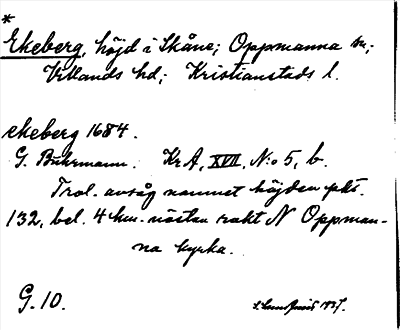 *
Ekeberg, höjd i Skåne; Oppmanna sn;
Villands hd; Kristianstads l.
ekeberg 1684.
G. Buhrmann. KrA, XVII, N:o 5, b.
Trol. avsåg namnet höjden pkt.
132, bel. 4 km. nästan rakt N Oppman-
na kyrka.
G. 10.
1937.